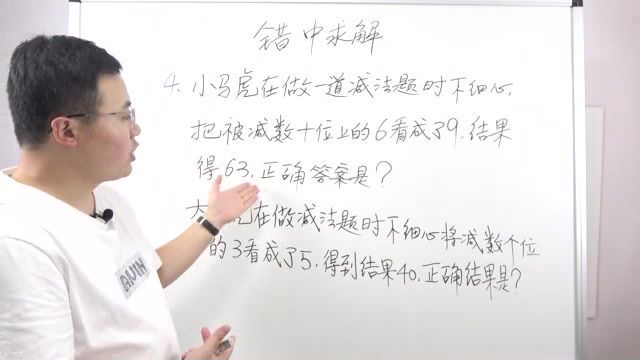 错中求解
4. 小马虎在做一道减法题时不细心,
把被减数十位上的6看成了9.结果
得63.正确答案是?
大 虎在做减法题时不细心将减数个位
的3看成了5.得到结果40.正确结果是?